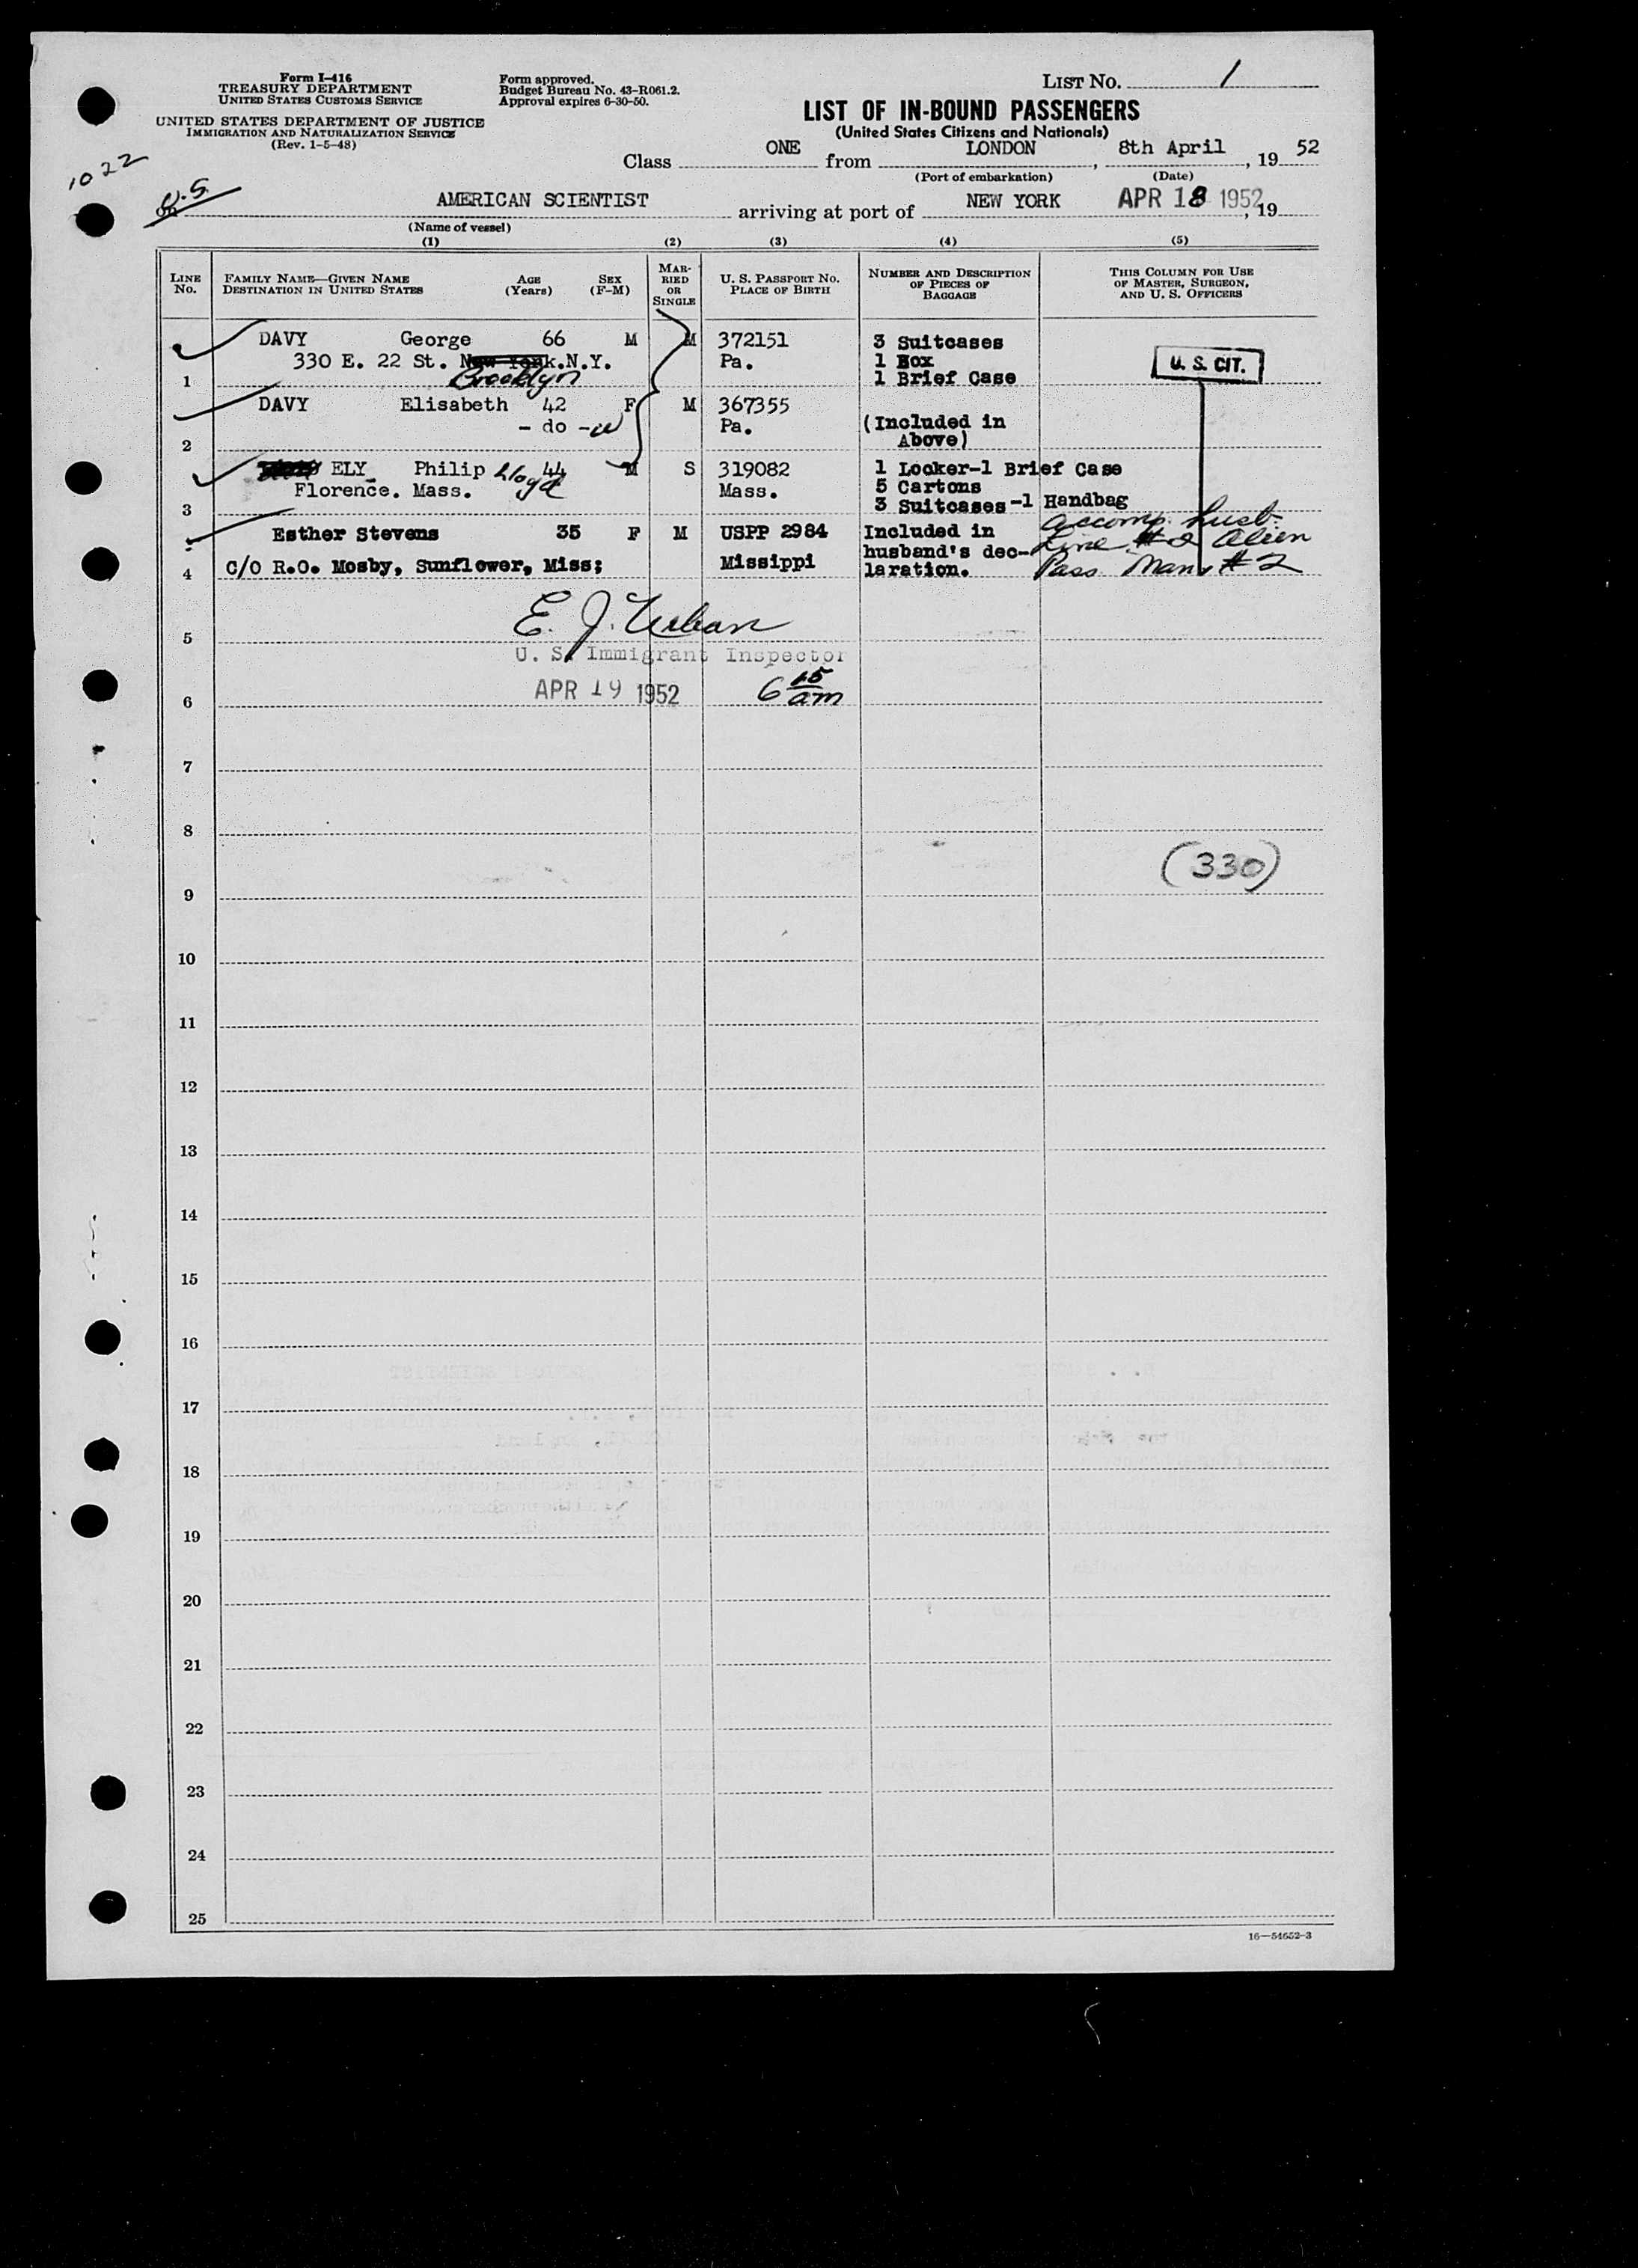 Form I-416
TREASURY DEPARTMENT
UNITED STATES CUSTOMS SERVICE
UNITED STATES DEPARTMENT OF JUSTICE
IMMIGRATION AND NATURALIZATION SERVICE
(Rev. 1-5-48)
Form approved.
Budget Bureau No. 43-R061.2.
Approval expires 6-30-50.
LIST NO. 1
LIST OF IN-BOUND PASSENGERS
(United States Citizens and Nationals)
Class ONE from LONDON, 8th April, 19 52
(Port of embarkation) (Date)
1022
U.S.
AMERICAN SCIENTIST arriving at port of NEW YORK APR 18 1952, 19
(Name of vessel)
(1) (2) (3) (4) (5)
LINE No.
FAMILY NAME—GIVEN NAME
DESTINATION IN UNITED STATES
AGE (Years)
SEX (F-M)
MARRIED OR SINGLE
U. S. PASSPORT NO.
PLACE OF BIRTH
NUMBER AND DESCRIPTION OF PIECES OF BAGGAGE
THIS COLUMN FOR USE OF MASTER, SURGEON, AND U. S. OFFICERS
DAVY George 66 M M 372151 3 Suitcases
330 E. 22 St. New York.N.Y. Pa. 1 Box
1 Brooklyn 1 Brief Case
U. S. CIT.
DAVY Elisabeth 42 F M 367355 (Included in
- do - Pa. Above)
2
ELY Philip Lloyd 44 M S 319082 1 Locker-1 Brief Case
Florence. Mass. Mass. 5 Cartons
3 3 Suitcases-1 Handbag
Esther Stevens 35 F M USPP 2984 Included in
husband's dec-
4 C/O R.O. Mosby, Sunflower, Miss; Missippi laration.
accomp. husb.
Line #2 Alien
Pass. Man. #2
E. J. Urban
5
U. S. Immigrant Inspector
APR 19 1952 6 15 am
6
7
8
(330)
9
10
11
12
13
14
15
16
17
18
19
20
21
22
23
24
25
16—54652-3